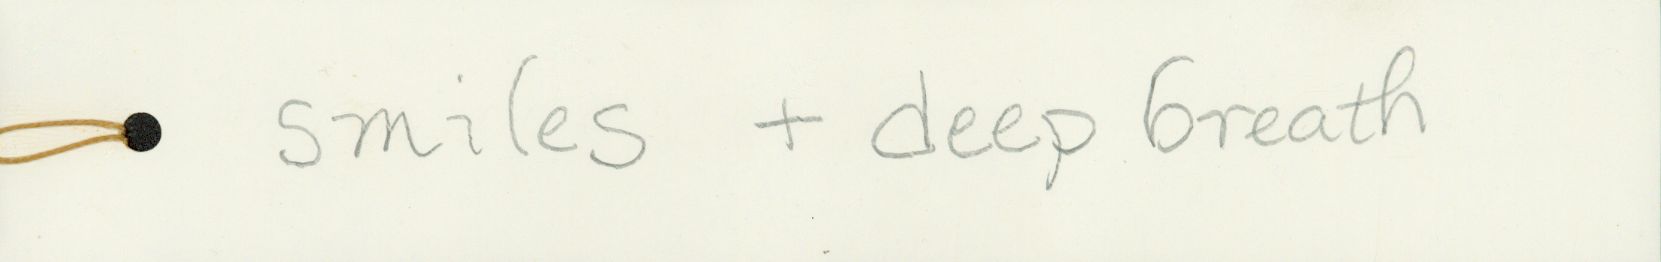 smiles + deep breath